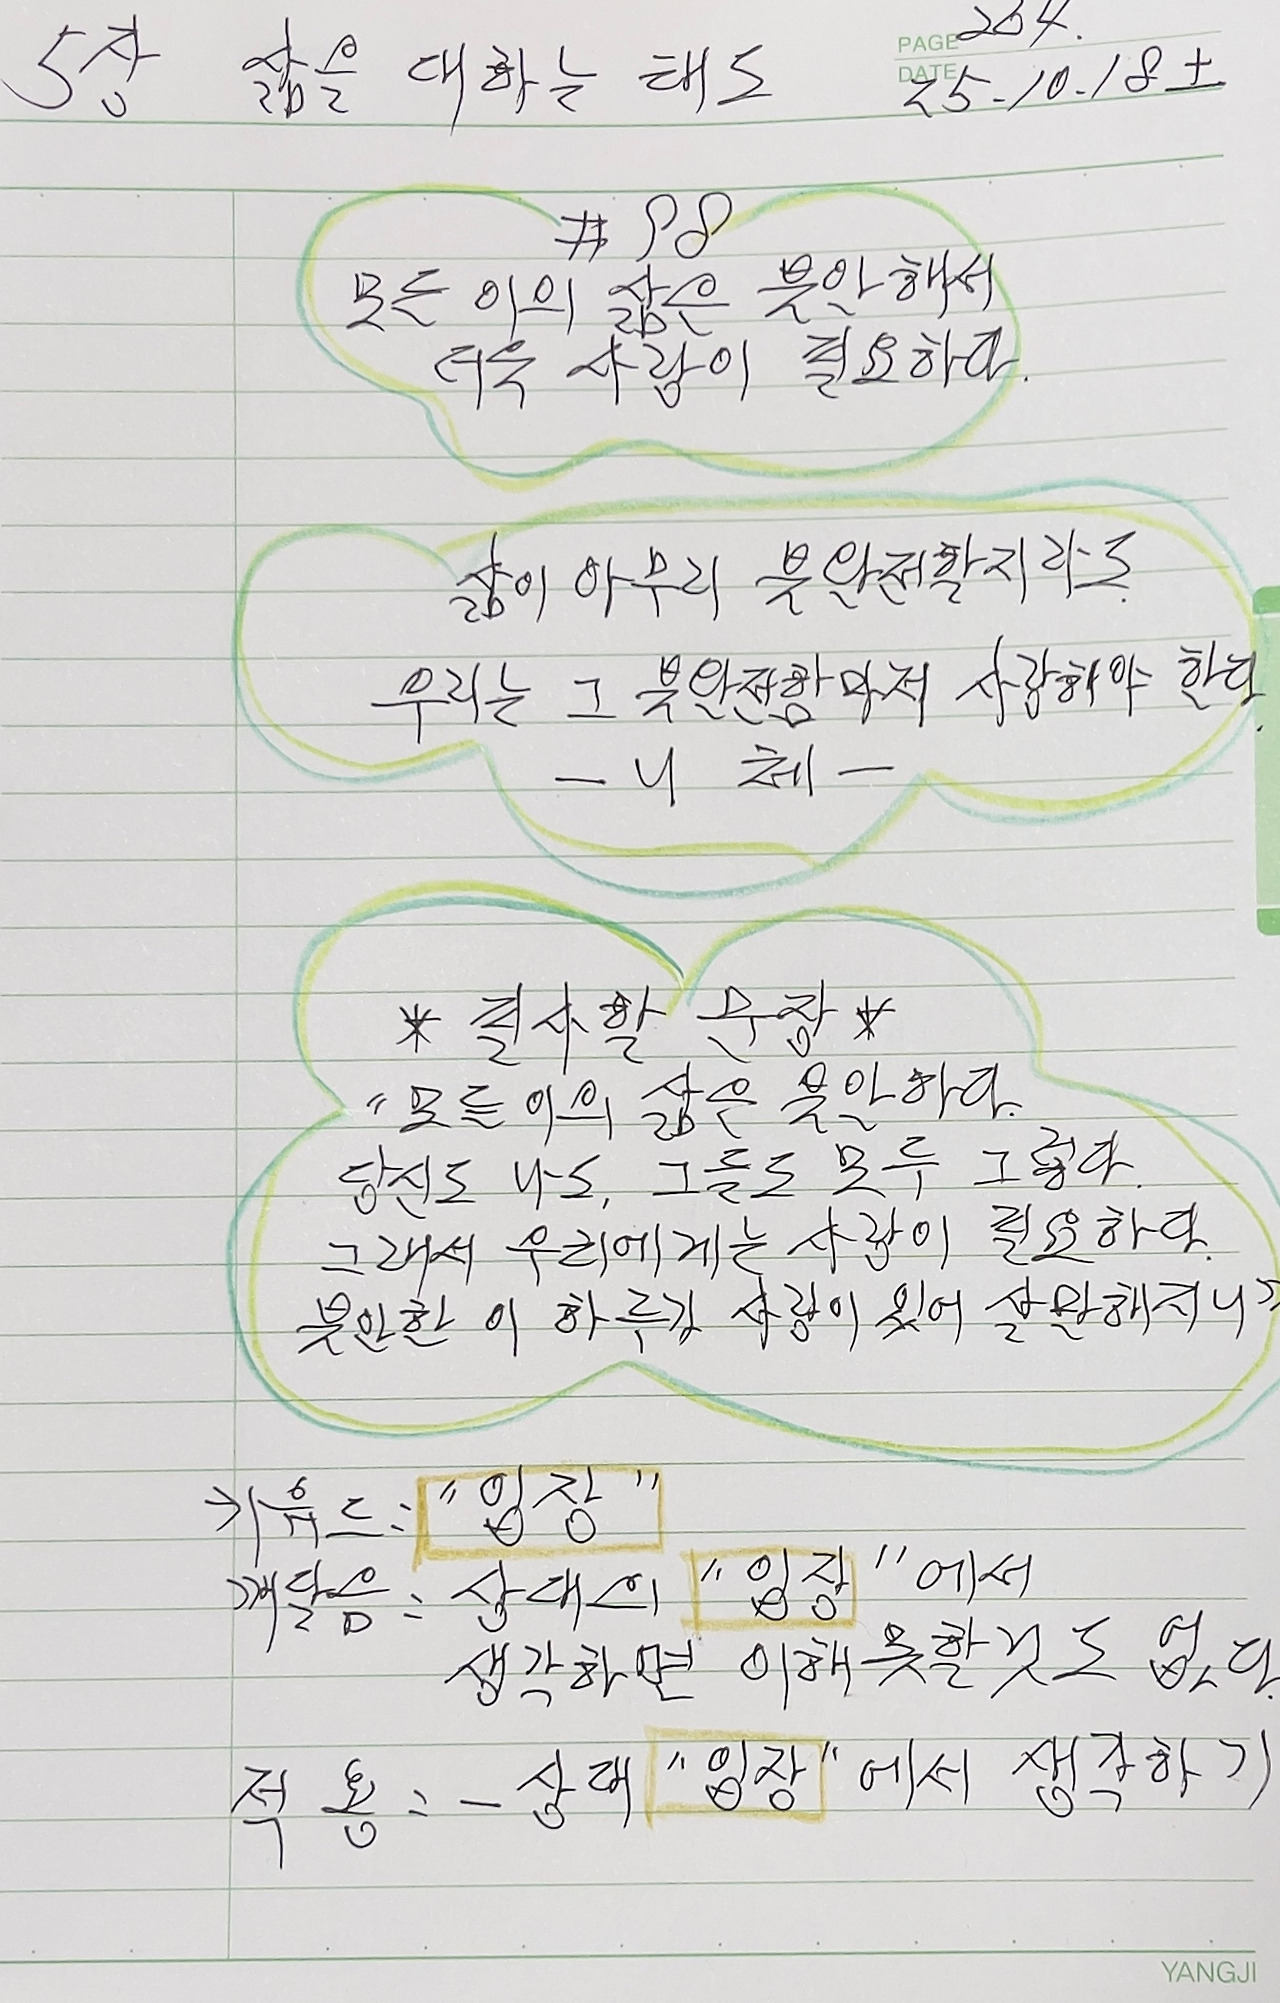 5장 삶을 대하는 태도
PAGE 204.
DATE 25.10.18 土
# 98
모든 이의 삶은 불안해서
더욱 사랑이 필요하다.
삶이 아무리 불완전할지라도
우리는 그 불완전함마저 사랑해야 한다.
- 니 체 -
* 필사할 문장 *
"모든이의 삶은 불안하다.
당신도 나도, 그들도 모두 그렇다.
그래서 우리에게는 사랑이 필요하다.
불안한 이 하루가 사랑이 있어 살만해지니까
키워드: "입장"
깨달음: 상대의 "입장"에서
생각하면 이해 못할것도 없다.
적 용: - 상대 "입장"에서 생각하기
YANGJI